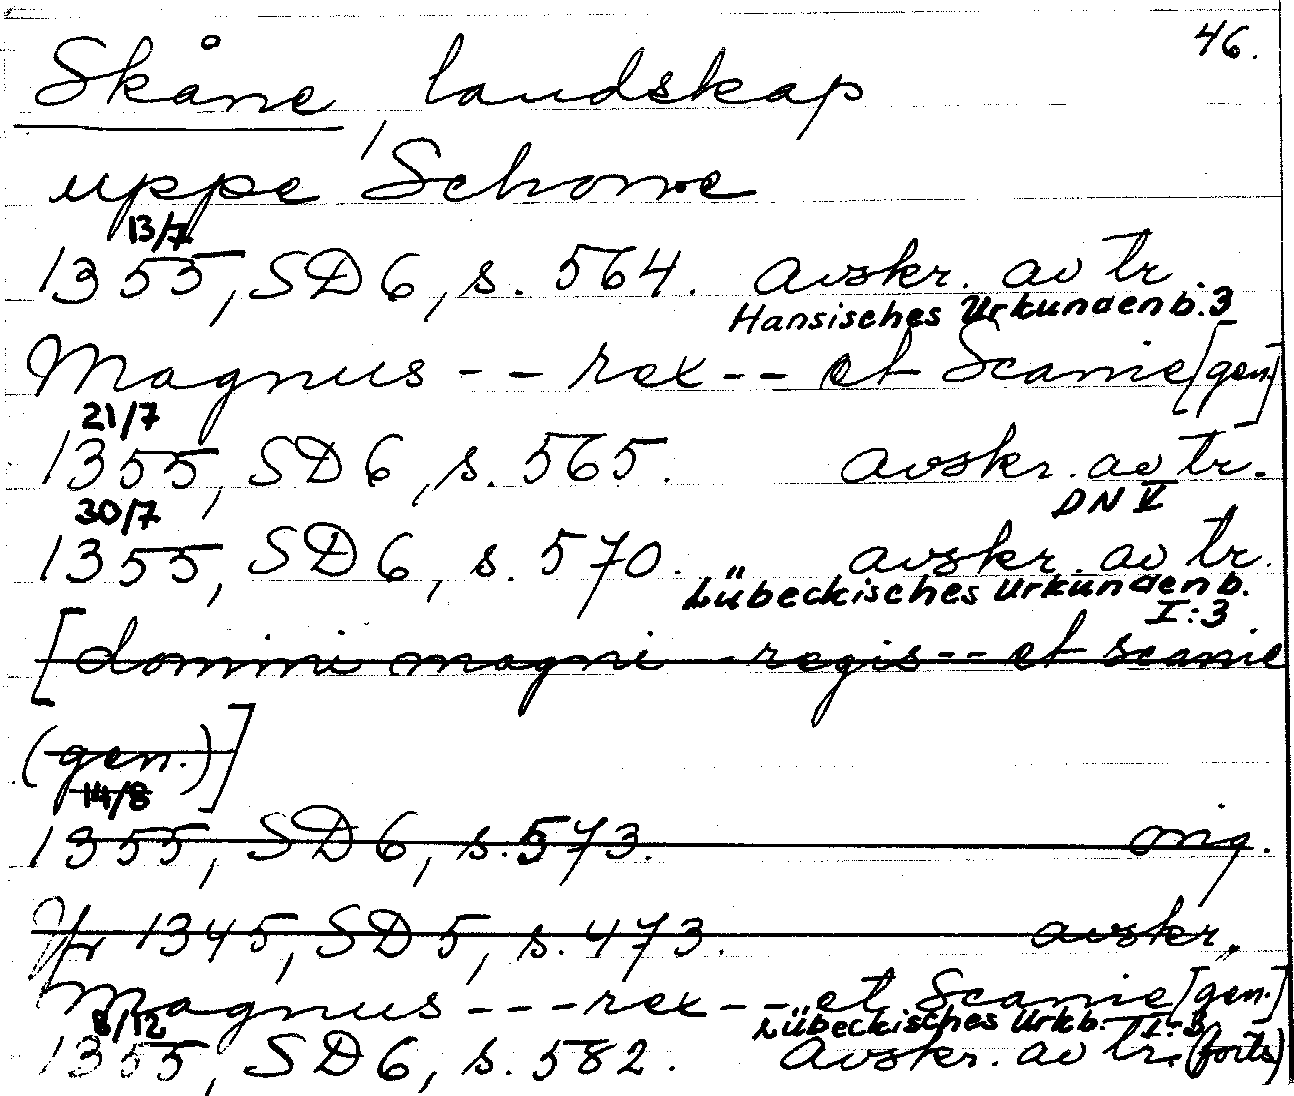 46.
Skåne, landskap
uppe Schone
13/7
1355, SD 6, s. 564. avskr. av tr.
Hansisches Urkundenb. 3
Magnus - - rex - - et Scanie [gen.]
21/7
1355, SD 6, s. 565. avskr. av tr.
DN V
30/7
1355, SD 6, s. 570. avskr. av tr.
Lübeckisches Urkundenb.
I:3
[domini magni - regis - - et scanie
(gen.)]
14/8
1355, SD 6, s. 573. orig.
Jfr 1345, SD 5, s. 473. avskr.
Magnus - - - rex - - et Scanie [gen.]
8/12
Lübeckisches Urkb. I:3
1355, SD 6, s. 582. avskr. av tr. (forts)